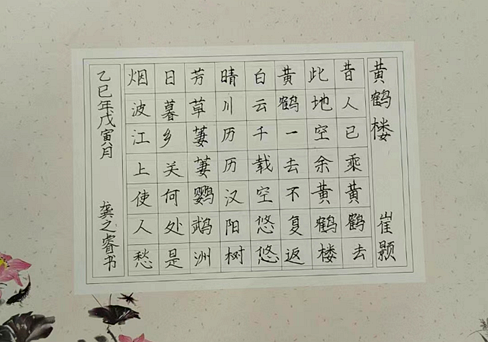 黄鹤楼 崔颢
昔人已乘黄鹤去
此地空余黄鹤楼
黄鹤一去不复返
白云千载空悠悠
晴川历历汉阳树
芳草萋萋鹦鹉洲
日暮乡关何处是
烟波江上使人愁
乙巳年戊寅月 龚之睿书